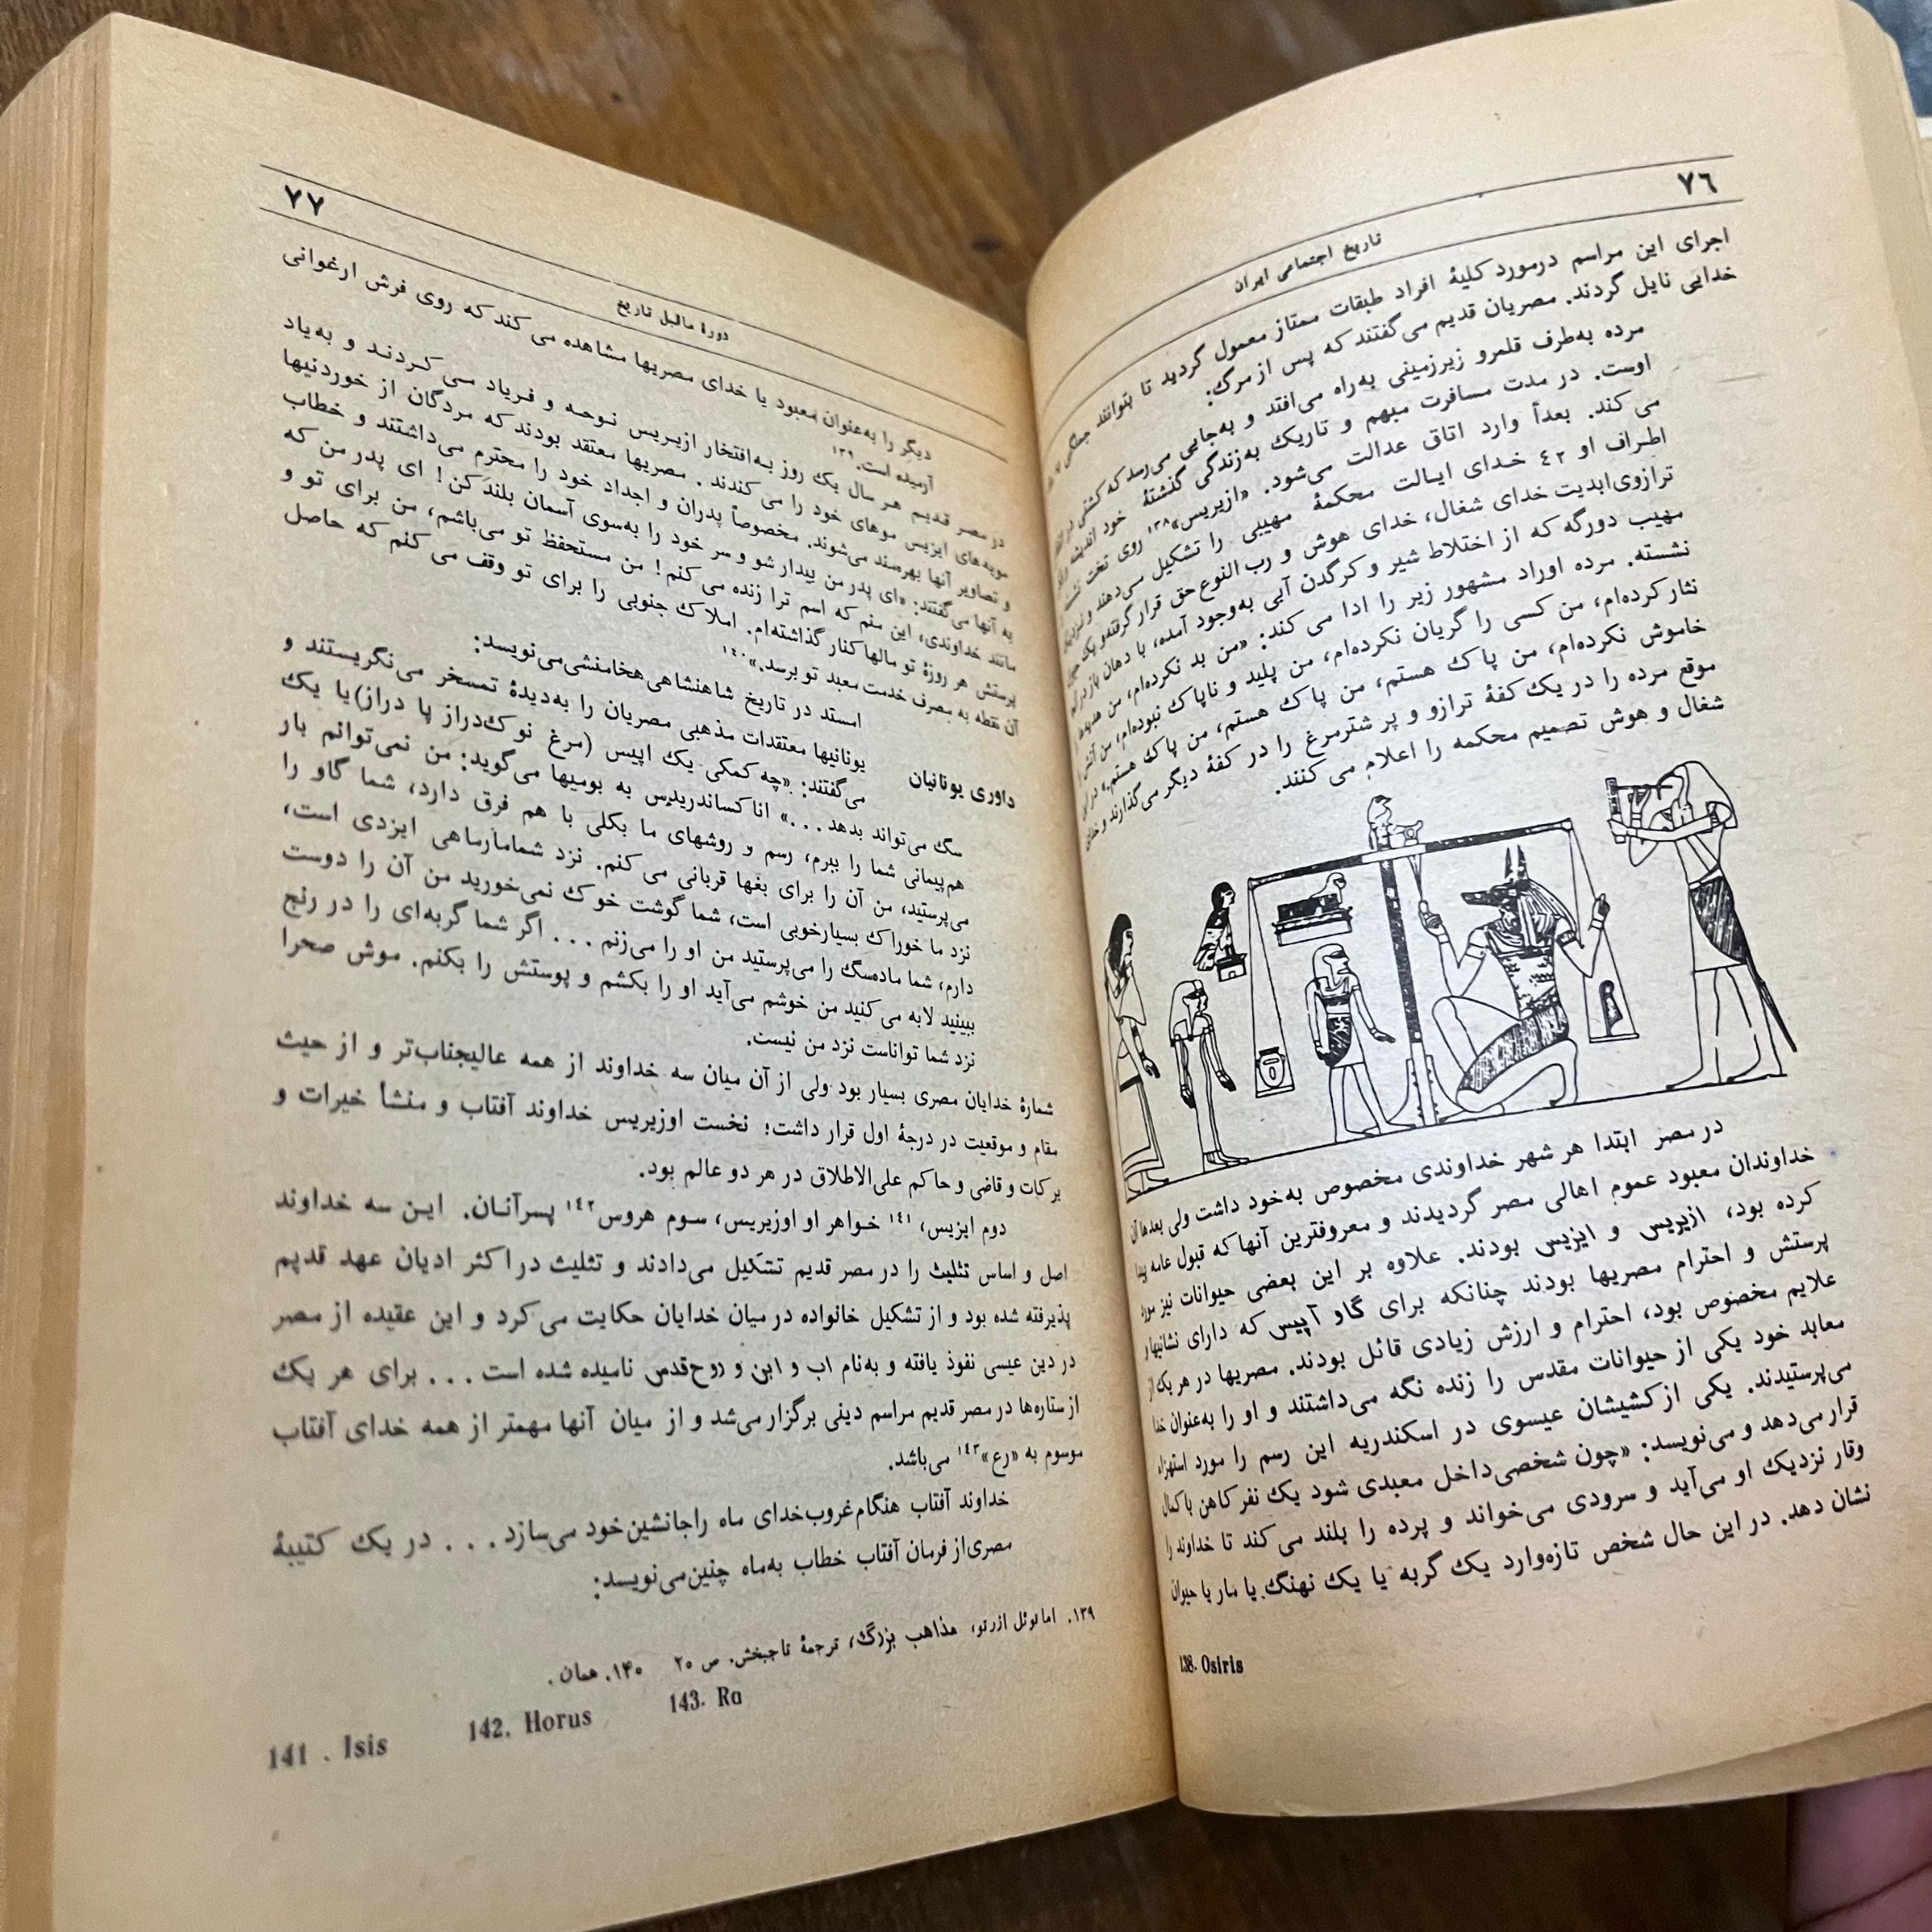 ۷۶
تاریخ اجتماعی ایران
اجرای این مراسم درمورد کلیهٔ افراد طبقات ممتاز معمول گردید تا بتوانند جملگی به
خدایی نایل گردند. مصریان قدیم می‌گفتند که پس از مرگ:
مرده به‌طرف قلمرو زیرزمینی به‌راه می‌افتد و به‌جایی می‌رسد که کشتی در
اوست. در مدت مسافرت مبهم و تاریک به‌زندگی گذشتهٔ خود اندیشه
می‌کند. بعداً وارد اتاق عدالت می‌شود. «ازیریس»۱۳۸ روی تخت نشسته
اطراف او ٤٢ خدای ایالت محکمهٔ مهیبی را تشکیل می‌دهند و نزدیک
ترازوی‌ابدیت خدای شغال، خدای هوش و رب النوع حق قرار گرفته‌و یک
مهیب دورگه که از اختلاط شیر و کرگدن آبی به‌وجود آمده، با دهان باز در آنجا
نشسته. مرده اوراد مشهور زیر را ادا می‌کند: «من بد نکرده‌ام، من
نثار کرده‌ام، من کسی را گریان نکرده‌ام، من پلید و ناپاک نبوده‌ام، من آتش
خاموش نکرده‌ام، من پاک هستم، من پاک هستم، من پاک هستم.» در این
موقع مرده را در یک کفهٔ ترازو و پر شترمرغ را در کفهٔ دیگر می‌گذارند و خدای
شغال و هوش تصمیم محکمه را اعلام می‌کنند.
در مصر ابتدا هر شهر خداوندی مخصوص به‌خود داشت ولی بعدها آن
خداوندان معبود عموم اهالی مصر گردیدند و معروفترین آنها که قبول عامه پیدا
کرده بود، ازیریس و ایزیس بودند. علاوه بر این بعضی حیوانات نیز مورد
پرستش و احترام مصریها بودند چنانکه برای گاو آپیس که دارای نشانیها و
علایم مخصوص بود، احترام و ارزش زیادی قائل بودند. مصریها در هر یک از
معابد خود یکی از حیوانات مقدس را زنده نگه می‌داشتند و او را به‌عنوان خدا
می‌پرستیدند. یکی از کشیشان عیسوی در اسکندریه این رسم را مورد استهزاء
قرار می‌دهد و می‌نویسد: «چون شخصی‌داخل معبدی شود یک نفر کاهن با کمال
وقار نزدیک او می‌آید و سرودی می‌خواند و پرده را بلند می‌کند تا خداوند را
نشان دهد. در این حال شخص تازه‌وارد یک گربه یا یک نهنگ یا مار یا حیوان
138. Osiris
۷۷
دورهٔ ماقبل تاریخ
دیگر را به‌عنوان معبود یا خدای مصریها مشاهده می‌کند که روی فرش ارغوانی
آرمیده است.۱۳۹
در مصر قدیم هر سال یک روز به‌افتخار ازیریس نوحه و فریاد می‌کردند و به‌یاد
مویه‌های ایزیس موهای خود را می‌کندند. مصریها معتقد بودند که مردگان از خوردنیها
و تصاویر آنها بهره‌مند می‌شوند. مخصوصاً پدران و اجداد خود را محترم می‌داشتند و خطاب
به آنها می‌گفتند: «ای پدر من بیدار شو و سر خود را به‌سوی آسمان بلند کن! ای پدر من که
مانند خداوندی، این منم که اسم ترا زنده می‌کنم! من مستحفظ تو می‌باشم، من برای تو و
پرستش هر روزهٔ تو مالها کنار گذاشته‌ام. املاک جنوبی را برای تو وقف می‌کنم که حاصل
آن نقطه به مصرف خدمت معبد تو برسد.»۱۴۰
امستد در تاریخ شاهنشاهی هخامنشی‌می‌نویسد:
داوری یونانیان
یونانیها معتقدات مذهبی مصریان را به‌دیدهٔ تمسخر می‌نگریستند و
می‌گفتند: «چه کمکی یک اپیس (مرغ نوک‌دراز پا دراز)یا یک
سگ می‌تواند بدهد...» اناکساندریدیس به بومیها می‌گوید: من نمی‌توانم بار
هم‌پیمانی شما را ببرم، رسم و روشهای ما بکلی با هم فرق دارد، شما گاو را
می‌پرستید، من آن را برای بغها قربانی می‌کنم. نزد شمامارماهی ایزدی است،
نزد ما خوراک بسیارخوبی است، شما گوشت خوک نمی‌خورید من آن را دوست
دارم، شما ماده‌سگ را می‌پرستید من او را می‌زنم ... اگر شما گربه‌ای را در رنج
ببینید لابه می‌کنید من خوشم می‌آید او را بکشم و پوستش را بکنم. موش صحرا
نزد شما تواناست نزد من نیست.
شمارهٔ خدایان مصری بسیار بود ولی از آن میان سه خداوند از همه عالیجناب‌تر و از حیث
مقام و موقعیت در درجهٔ اول قرار داشت؛ نخست اوزیریس خداوند آفتاب و منشأ خیرات و
برکات و قاضی و حاکم علی‌الاطلاق در هر دو عالم بود.
دوم ایزیس،۱۴۱ خواهر او اوزیریس، سوم هروس۱۴۲ پسرآنان. این سه خداوند
اصل و اساس تثلیث را در مصر قدیم تشکیل می‌دادند و تثلیث در اکثر ادیان عهد قدیم
پذیرفته شده بود و از تشکیل خانواده در میان خدایان حکایت می‌کرد و این عقیده از مصر
در دین عیسی نفوذ یافته و به‌نام اب و ابن و روح‌قدس نامیده شده است ... برای هر یک
از ستاره‌ها در مصر قدیم مراسم دینی برگزار می‌شد و از میان آنها مهمتر از همه خدای آفتاب
موسوم به «رع»۱۴۳ می‌باشد.
خداوند آفتاب هنگام غروب‌خدای ماه راجانشین‌خود می‌سازد... در یک کتیبهٔ
مصری‌از فرمان آفتاب خطاب به‌ماه چنین‌می‌نویسد:
۱۳۹. امانوئل ازرتو، مذاهب بزرگ، ترجمهٔ تاجبخش. ص ۲۵ ۱۴۰. همان.
141 . Isis 142. Horus 143. Ra